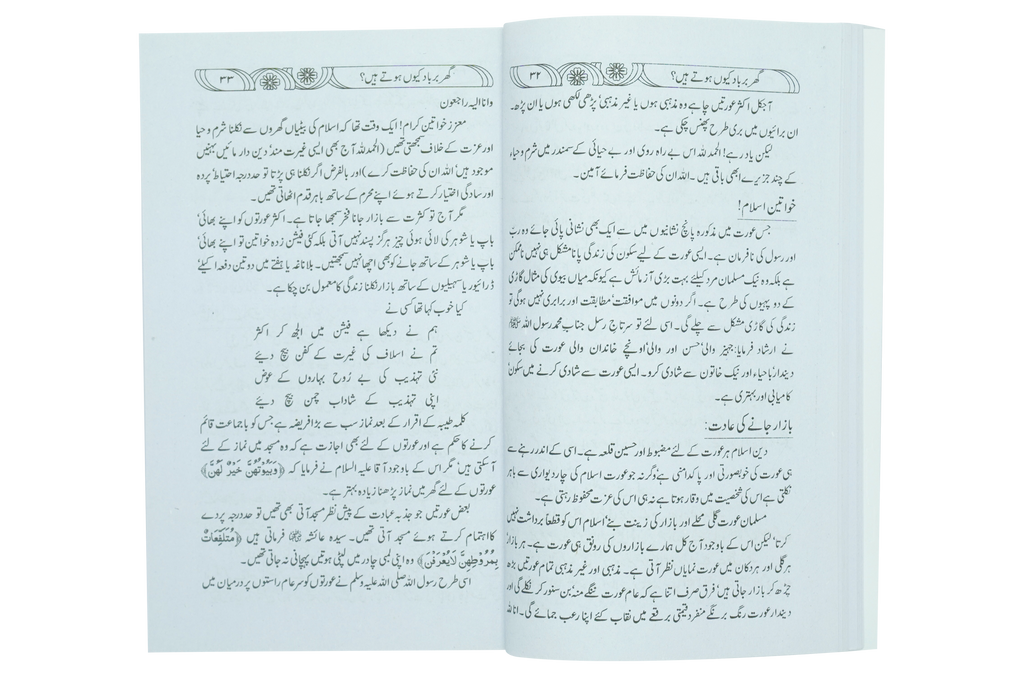 گھر برباد کیوں ہوتے ہیں؟ ۳۲
آجکل اکثر عورتیں چاہے وہ مذہبی ہوں یا غیر مذہبی، پڑھی لکھی ہوں یا ان پڑھ۔
ان برائیوں میں بری طرح پھنس چکی ہے۔
لیکن یاد رہے! الحمد للہ اس بے راہ روی اور بے حیائی کے سمندر میں شرم و حیاء
کے چند جزیرے ابھی باقی ہیں۔ اللہ ان کی حفاظت فرمائے آمین۔
خواتین اسلام!
جس عورت میں مذکورہ پانچ نشانیوں میں سے ایک بھی نشانی پائی جائے وہ ربّ
اور رسول کی نافرمان ہے۔ ایسی عورت کے لیے سکون کی زندگی پانا مشکل ہی نہیں ناممکن
ہے بلکہ وہ نیک مسلمان مرد کیلئے بہت بڑی آزمائش ہے کیونکہ میاں بیوی کی مثال گاڑی
کے دو پہیوں کی طرح ہے۔ اگر دونوں میں موافقت، مطابقت اور برابری نہیں ہوگی تو
زندگی کی گاڑی مشکل سے چلے گی۔ اسی لئے تو سرتاج رسل جناب محمد رسول اللہ ﷺ
نے ارشاد فرمایا: جہیز والی، حسن اور والی، اونچے خاندان والی عورت کی بجائے
دیندار، باحیاء اور نیک خاتون سے شادی کرو۔ ایسی عورت سے شادی کرنے میں سکون،
کامیابی اور بہتری ہے۔
بازار جانے کی عادت:
دین اسلام ہر عورت کے لئے مضبوط اور حسین قلعہ ہے۔ اسی کے اندر رہنے سے
ہی عورت کی خوبصورتی اور پاکدامنی ہے وگرنہ جو عورت اسلام کی چار دیواری سے باہر
نکلتی ہے اس کی شخصیت میں وقار ہوتا ہے نہ ہی اس کی عزت محفوظ رہتی ہے۔
مسلمان عورت گلی محلے اور بازار کی زینت بنے، اسلام اس کو قطعاً برداشت نہیں
کرتا، لیکن اس کے باوجود آج کل ہمارے بازاروں کی رونق ہی عورت ہے۔ ہر بازار،
ہر گلی اور ہر دکان میں عورت نمایاں نظر آتی ہے۔ مذہبی اور غیر مذہبی تمام عورتیں بڑھ
چڑھ کر بازار جاتی ہیں، فرق صرف اتنا ہے کہ عام عورت ننگے منہ، بن سنور کر نکلے گی اور
دیندار عورت رنگ برنگے منفرد قیمتی برقعے میں نقاب کئے اپنا رعب جمائے گی۔ انا للہ
گھر برباد کیوں ہوتے ہیں؟ ۳۳
وانا الیہ راجعون
معزز خواتین کرام! ایک وقت تھا کہ اسلام کی بیٹیاں گھروں سے نکلنا شرم و حیا
اور عزت کے خلاف سمجھتی تھیں (الحمد للہ آج بھی ایسی غیرت مند، دین دار مائیں بہنیں
موجود ہیں، اللہ ان کی حفاظت کرے) اور بالفرض اگر نکلنا ہی پڑتا تو حد درجہ احتیاط، پردہ
اور سادگی اختیار کرتے ہوئے اپنے محرم کے ساتھ باہر قدم اٹھاتی تھیں۔
مگر آج تو کثرت سے بازار جانا فخر سمجھا جاتا ہے۔ اکثر عورتوں کو اپنے بھائی،
باپ یا شوہر کی لائی ہوئی چیز ہرگز پسند نہیں آتی بلکہ کئی فیشن زدہ خواتین تو اپنے بھائی،
باپ یا شوہر کے ساتھ جانے کو بھی اچھا نہیں سمجھتیں۔ بلاناغہ یا ہفتے میں دو تین دفعہ اکیلے،
ڈرائیور یا سہیلیوں کے ساتھ بازار نکلنا زندگی کا معمول بن چکا ہے۔
کیا خوب کہا تھا کسی نے
ہم نے دیکھا ہے فیشن میں الجھ کر اکثر
تم نے اسلاف کی غیرت کے کفن بیچ دیئے
نئی تہذیب کی بے روح بہاروں کے عوض
اپنی تہذیب کے شاداب چمن بیچ دیئے
کلمہ طیبہ کے اقرار کے بعد نماز سب سے بڑا فریضہ ہے جس کو باجماعت قائم
کرنے کا حکم ہے اور عورتوں کے لئے بھی اجازت ہے کہ وہ مسجد میں نماز کے لئے
آسکتی ہیں، مگر اس کے باوجود آقا علیہ السلام نے فرمایا کہ ﴿وَبُيُوتُهُنَّ خَيْرٌ لَّهُنَّ﴾
عورتوں کے لئے گھر میں نماز پڑھنا زیادہ بہتر ہے۔
بعض عورتیں جو جذبہ عبادت کے پیش نظر مسجد آتی بھی تھیں تو حد درجہ پردے
کا اہتمام کرتے ہوئے مسجد آتی تھیں۔ سیدہ عائشہ فرماتی ہیں ﴿مُتَلَفِّعَاتٌ
بِمُرُوطِهِنَّ لَا يُعْرَفْنَ﴾ وہ اپنی لمبی چادر میں لپٹی ہوتیں پہچانی نہ جاتی تھیں۔
اسی طرح رسول اللہ صلی اللہ علیہ وسلم نے عورتوں کو سرعام راستوں پر درمیان میں